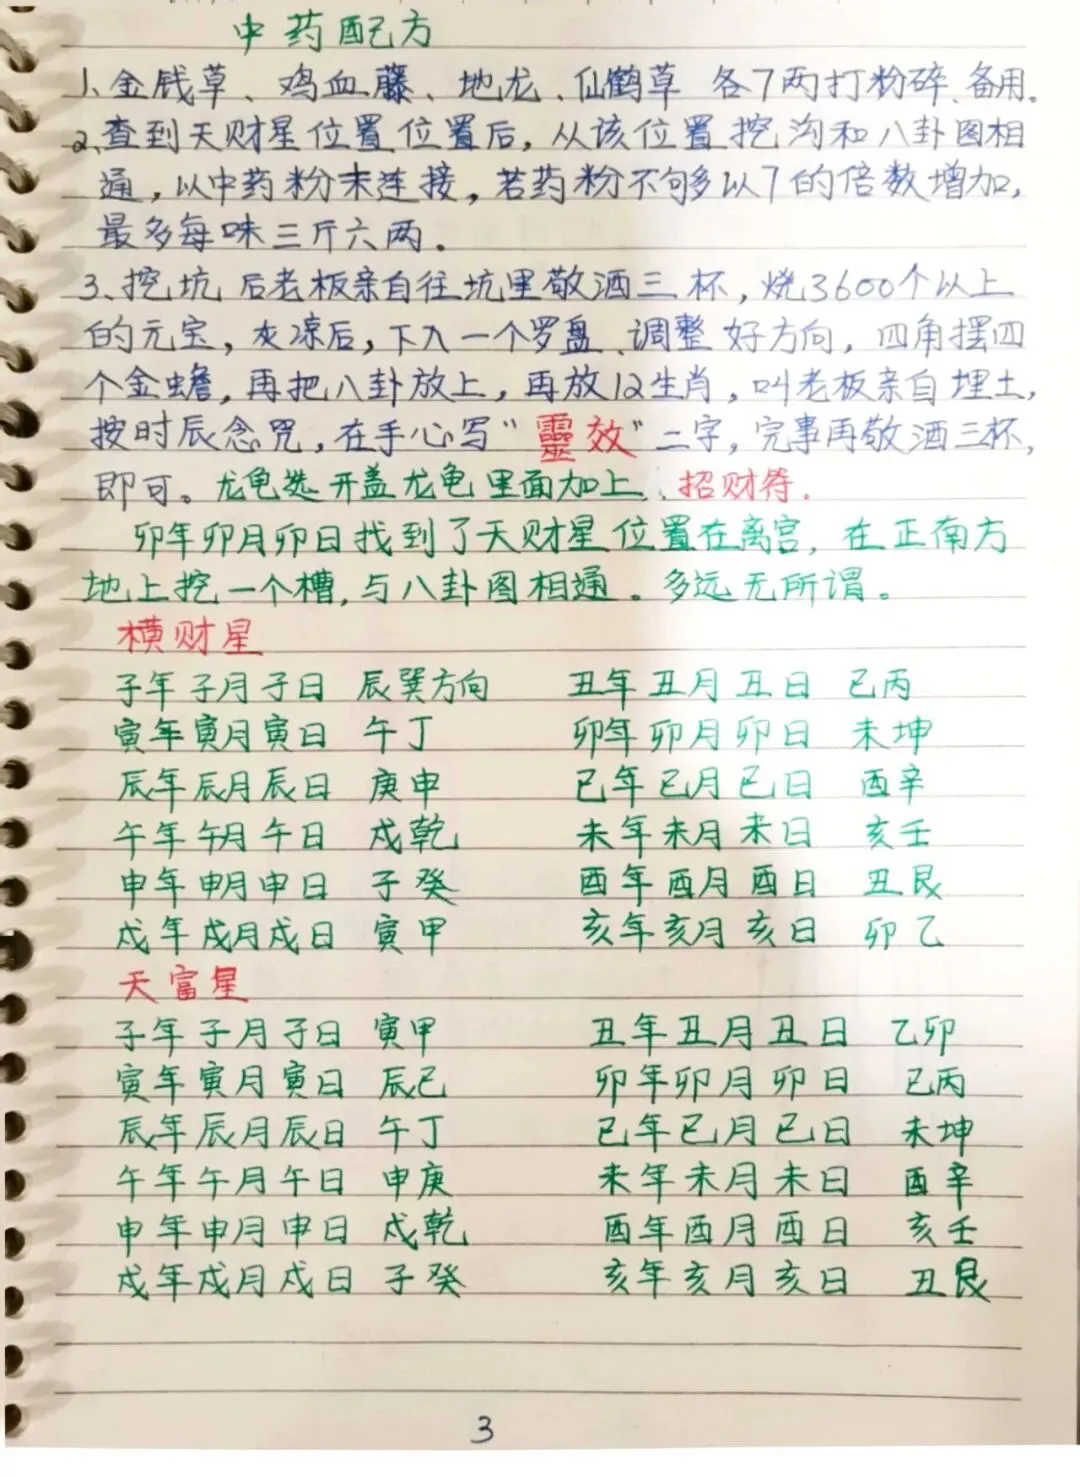 中药配方
1、金钱草、鸡血藤、地龙、仙鹤草 各7两打粉碎、备用。
2、查到天财星位置位置后，从该位置挖沟和八卦图相
通，以中药粉末连接，若药粉不够多以7的倍数增加，
最多每味三斤六两。
3、挖坑后老板亲自往坑里敬酒三杯，烧3600个以上
的元宝，灰凉后，下入一个罗盘、调整好方向，四角摆四
个金蟾，再把八卦放上，再放12生肖，叫老板亲自埋土，
按时辰念咒，在手心写“靈效”二字，完事再敬酒三杯，
即可。龙龟选开盖龙龟里面加上、招财符．
卯年卯月卯日找到了天财星位置在离宫，在正南方
地上挖一个槽，与八卦图相通。多远无所谓。
横财星
子年子月子日 辰巽方向 丑年丑月丑日 己丙
寅年寅月寅日 午丁 卯年卯月卯日 未坤
辰年辰月辰日 庚申 已年已月已日 酉辛
午年午月午日 戍乾 未年未月未日 亥壬
申年申月申日 子癸 酉年酉月酉日 丑艮
戍年戍月戍日 寅甲 亥年亥月亥日 卯乙
天富星
子年子月子日 寅甲 丑年丑月丑日 乙卯
寅年寅月寅日 辰已 卯年卯月卯日 已丙
辰年辰月辰日 午丁 已年已月已日 未坤
午年午月午日 申庚 未年未月未日 酉辛
申年申月申日 戍乾 酉年酉月酉日 亥壬
戍年戍月戍日 子癸 亥年亥月亥日 丑艮
3